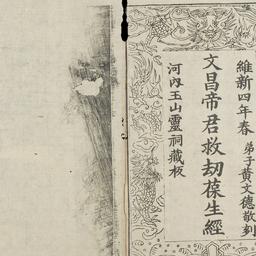 維新四年春 弟子黄文德敬刻
文昌帝君救劫葆生經
河內玉山靈祠藏板